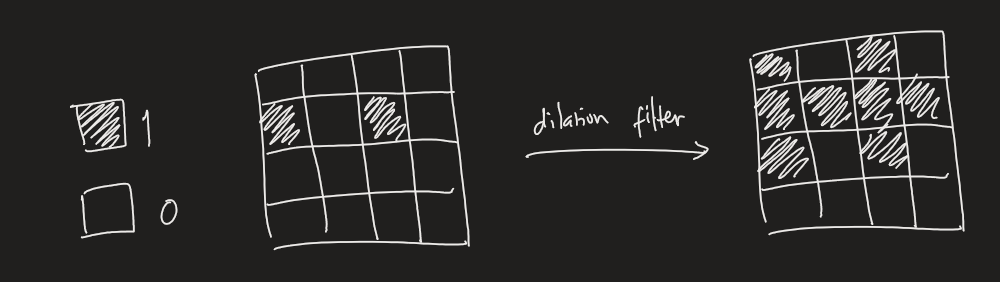 1
0
dilation filter